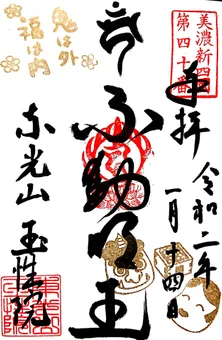 美濃新四国
第四十番
奉拝
令和二年
一月十四日
不動明王
鬼は外
福は内
東光山
玉性院